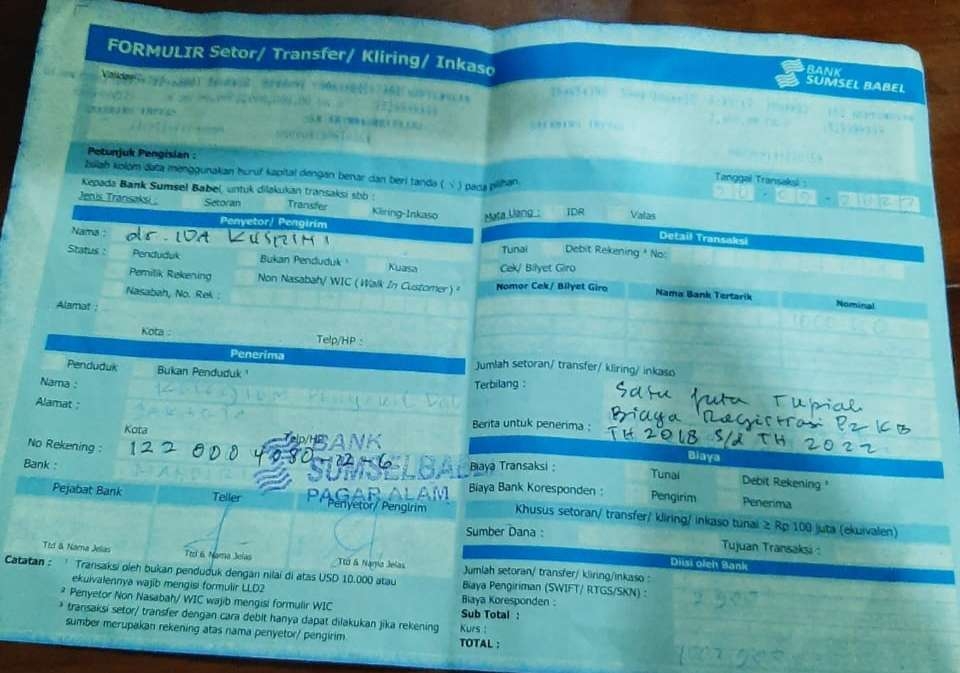 FORMULIR Setor/ Transfer/ Kliring/ Inkaso
BANK
SUMSEL BABEL
Validasi
Petunjuk Pengisian :
Isilah kolom data menggunakan huruf kapital dengan benar dan beri tanda ( √ ) pada pilihan.
Kepada Bank Sumsel Babel, untuk dilakukan transaksi sbb :
Tanggal Transaksi :
Jenis Transaksi : Setoran Transfer Kliring-Inkaso
Mata Uang : IDR Valas
Penyetor/ Pengirim
Nama : dr. IDA
Status : Penduduk Bukan Penduduk ¹ Kuasa
Pemilik Rekening Non Nasabah/ WIC ( Walk In Customer ) ²
Nasabah, No. Rek :
Alamat :
Kota : Telp/HP :
Penerima
Penduduk Bukan Penduduk ¹
Nama :
Alamat :
Kota Telp/HP
No Rekening : 122 000
Bank :
BANK
SUMSELBABEL
PAGAR ALAM
Pejabat Bank Teller Penyetor/ Pengirim
Ttd & Nama Jelas Ttd & Nama Jelas Ttd & Nama Jelas
Catatan : ¹ Transaksi oleh bukan penduduk dengan nilai di atas USD 10.000 atau
ekuivalennya wajib mengisi formulir LLD2
² Penyetor Non Nasabah/ WIC wajib mengisi formulir WIC
³ transaksi setor/ transfer dengan cara debit hanya dapat dilakukan jika rekening
sumber merupakan rekening atas nama penyetor/ pengirim
Detail Transaksi
Tunai Debit Rekening ³ No:
Cek/ Bilyet Giro
Nomor Cek/ Bilyet Giro Nama Bank Tertarik Nominal
Jumlah setoran/ transfer/ kliring/ inkaso
Terbilang : Satu juta rupiah
Berita untuk penerima : Biaya Registrasi P2KB
TH 2018 s/d TH 2022
Biaya
Biaya Transaksi : Tunai Debit Rekening ³
Biaya Bank Koresponden : Pengirim Penerima
Khusus setoran/ transfer/ kliring/ inkaso tunai ≥ Rp 100 juta (ekuivalen)
Sumber Dana : Tujuan Transaksi :
Diisi oleh Bank
Jumlah setoran/ transfer/ kliring/inkaso :
Biaya Pengiriman (SWIFT/ RTGS/SKN) :
Biaya Koresponden :
Sub Total :
Kurs :
TOTAL :